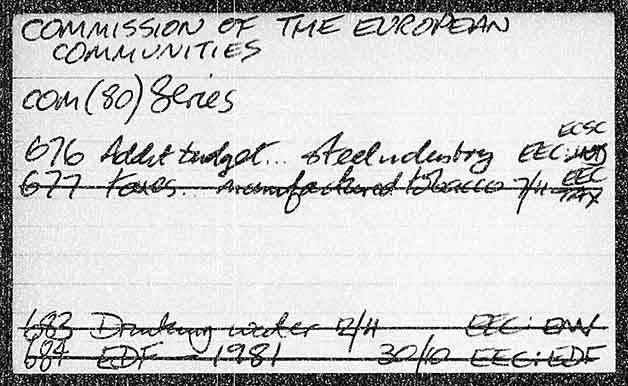 COMMISSION OF THE EUROPEAN
COMMUNITIES
COM(80) Series
ECSC
676 Addit budget... steel industry EEC:
677 Taxes... manufactured tobacco 7/11 EEC TAX
683 Drinking water 7/11 EEC: ENV
684 EDF - 1981 30/10 EEC:EDF